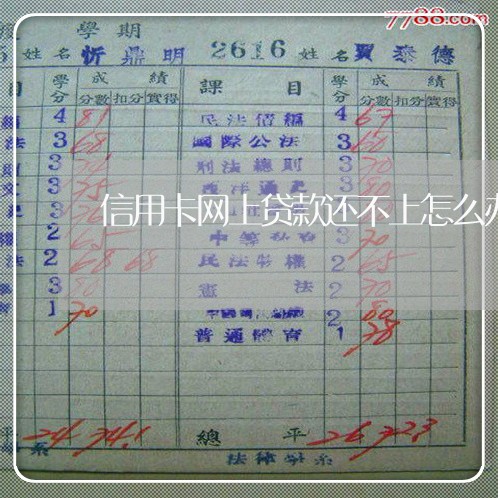 7788.com
學期
姓名 忻鼎明 2616 姓名 賈泰德
目 學分 成績 課目 學分 成績
分數 扣分 實得 分數 扣分 實得
4 81 民法債編 4 67
法 3 68 國際公法 3 60
3 刑法總則 3 70
3 75 西洋通史 3 80
信用卡网上贷款还不上怎么办
2 65 3 70
法 2 68 68 民法物權 2 65
3 80 憲法 2 70
1 70 2 80
普通體育 1 78
平 24 74.1 總平 26 72.3
系 法律學系